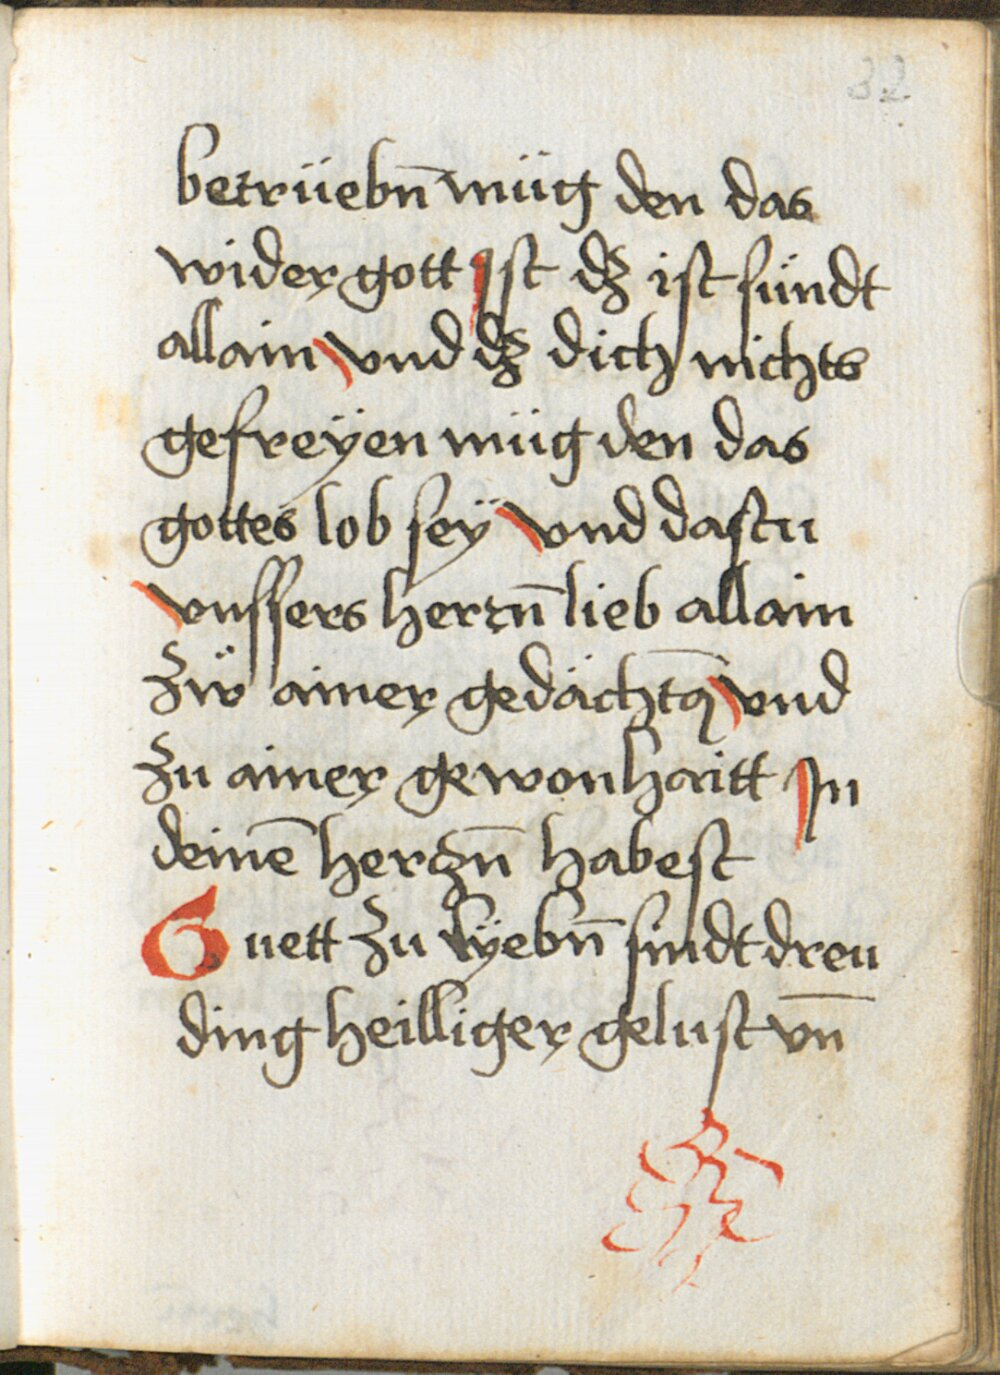 32
betrüebn̄ müg den das
wider gott Ist dʒ ist sündt
allain vnd dʒ dich nichts
gefreÿen müg den das
gottes lob seÿ vnd dastu
vnssers herzn̄ lieb allain
Zw̎ ainer gedächtq̄ vnd
Zu ainer gewonhaitt In
deinē herczn̄ habest
Guett zu lÿebn̄ sindt dreu
ding heilliger gelust vn̄